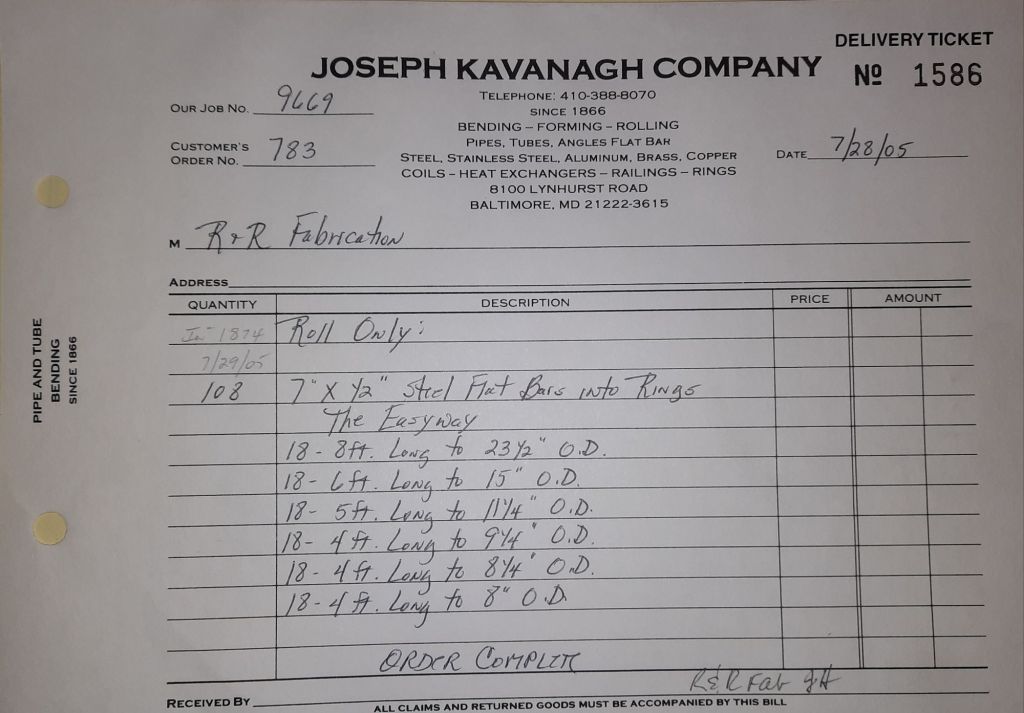 DELIVERY TICKET
JOSEPH KAVANAGH COMPANY
Nº 1586
TELEPHONE: 410-388-8070
SINCE 1866
BENDING – FORMING – ROLLING
PIPES, TUBES, ANGLES FLAT BAR
STEEL, STAINLESS STEEL, ALUMINUM, BRASS, COPPER
COILS – HEAT EXCHANGERS – RAILINGS – RINGS
8100 LYNHURST ROAD
BALTIMORE, MD 21222-3615
OUR JOB NO. 9669
CUSTOMER'S
ORDER NO. 783
DATE 7/28/05
M R & R Fabrication
ADDRESS
QUANTITY DESCRIPTION PRICE AMOUNT
1874 Roll Only:
7/29/05
108 7" X 1/2" Steel Flat Bars into Rings
The Easyway
18 - 8ft. Long to 23 1/2" O.D.
18 - 6ft. Long to 15" O.D.
18 - 5ft. Long to 11 1/4" O.D.
18 - 4ft. Long to 9 1/4" O.D.
18 - 4ft. Long to 8 1/4" O.D.
18 - 4ft. Long to 8" O.D.
ORDER COMPLETE
R & R Fab
RECEIVED BY
ALL CLAIMS AND RETURNED GOODS MUST BE ACCOMPANIED BY THIS BILL
PIPE AND TUBE
BENDING
SINCE 1866